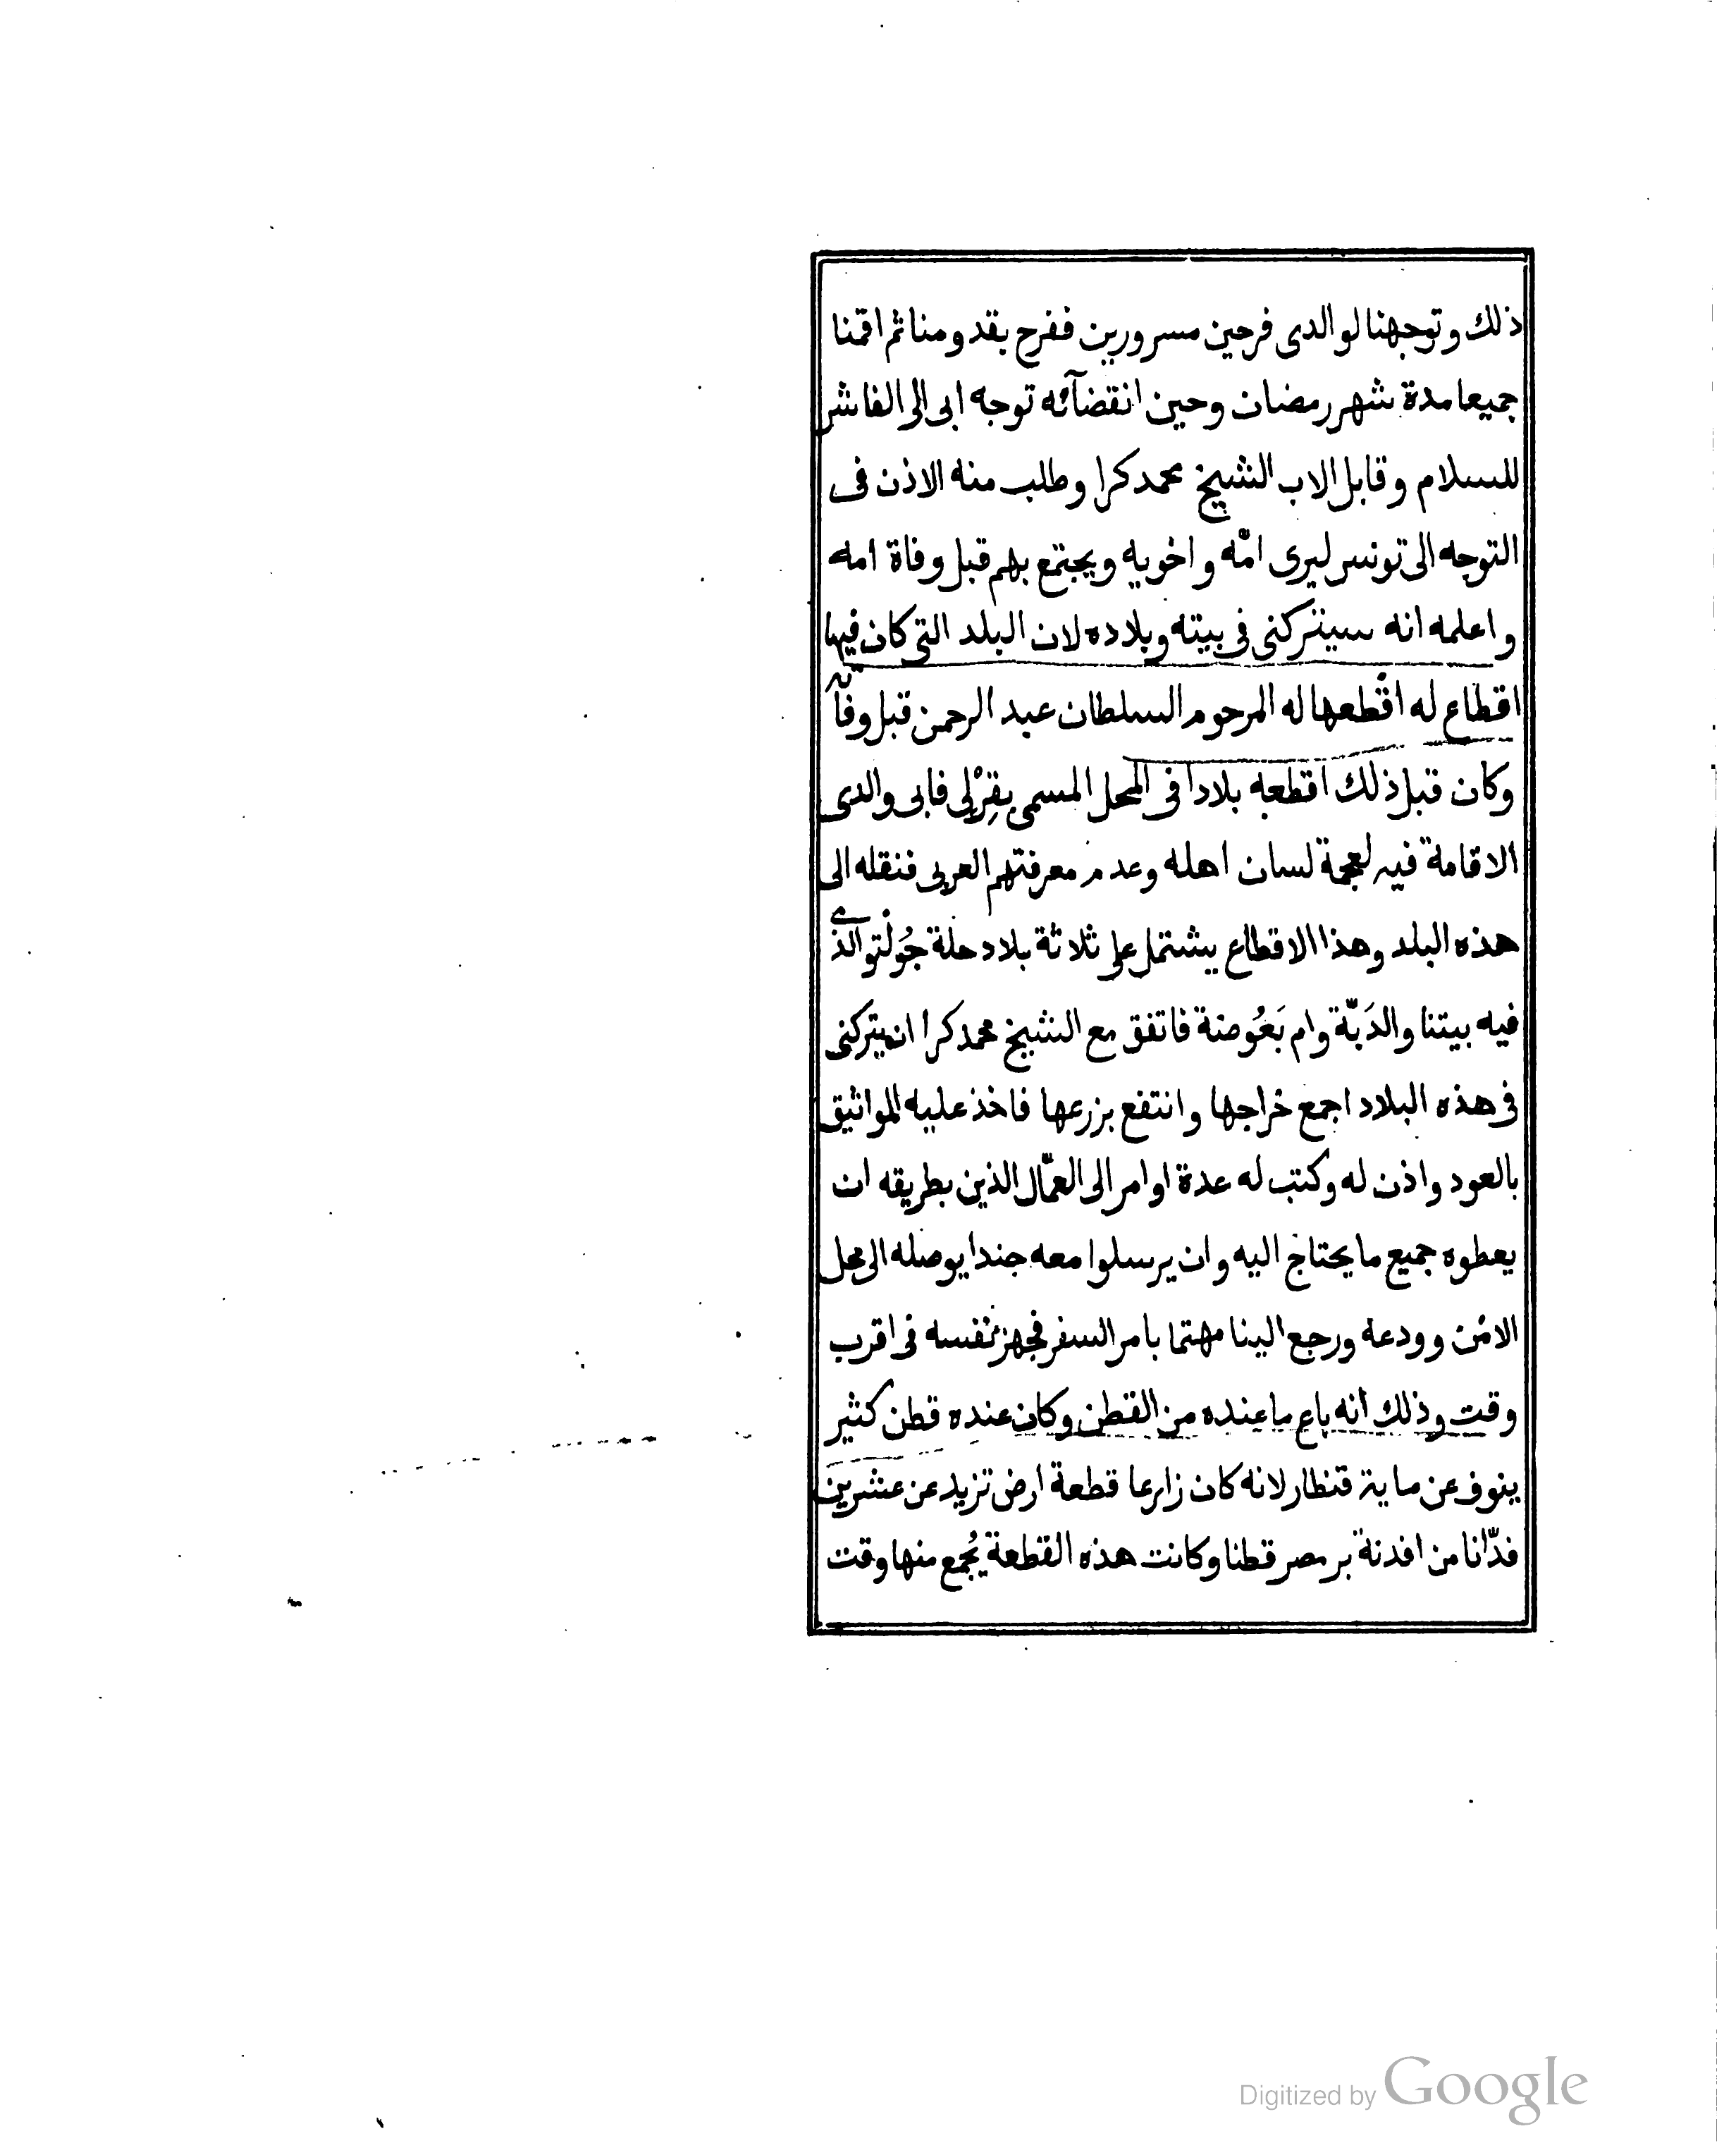 ذلك وتوجهنا لوالدى فرحين مسرورين ففرح بقدومنا ثم اقمنا
جميعا مدة شهر رمضان وحين انقضآئه توجه ابى الى الفاشر
للسلام وقابل الاب الشيخ محمد كرا وطلب منه الاذن فى
التوجه الى تونس ليرى امّه واخويه ويجتمع بهم قبل وفاة امه
واعلمه انه سيتركنى فى بيته وبلاده لان البلد التى كان فيها
اقطاع له اقْطعها له المرحوم السلطان عبد الرحمن قبل وفاته
وكان قبل ذلك اقطعه بلادا فى المحل المسمى بقِرْلِى فابى والدى
الاقامة فيه لعجمة لسان اهله وعدم معرفتهم العربى فنقله الى
هذه البلد وهذا الاقطاع يشتمل على ثلاثة بلاد حلة جُولْتو الذى
فيه بيتنا والدَبّة وام بَعُوضة فاتفق مع الشيخ محمد كرا ان يتركنى
فى هذه البلاد اجمع خراجها وانتفع بزرعها فاخذ عليه المواثيق
بالعود واذن له وكتب له عدة اوامر الى العمّال الذين بطريقه ان
يعطوه جميع ما يحتاج اليه وان يرسلوا معه جندا يوصله الى محل
الامن وودعه ورجع الينا مهتما بامر السفر فجهز نفسه فى اقرب
وقت وذلك انه باع ما عنده من القطن وكان عنده قطن كثير
ينوف عن ماية قنطار لانه كان زارعا قطعة ارض تزيد عن عشرين
فدّانا من افدنة بر مصر قطنا وكانت هذه القطعة يُجمع منها وقت
Digitized by Google